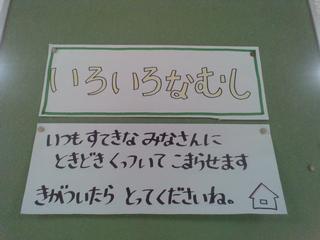 いろいろなむし
いつも すてきな みなさんに
ときどき くっついて こまらせます
きがついたら とってくださいね。